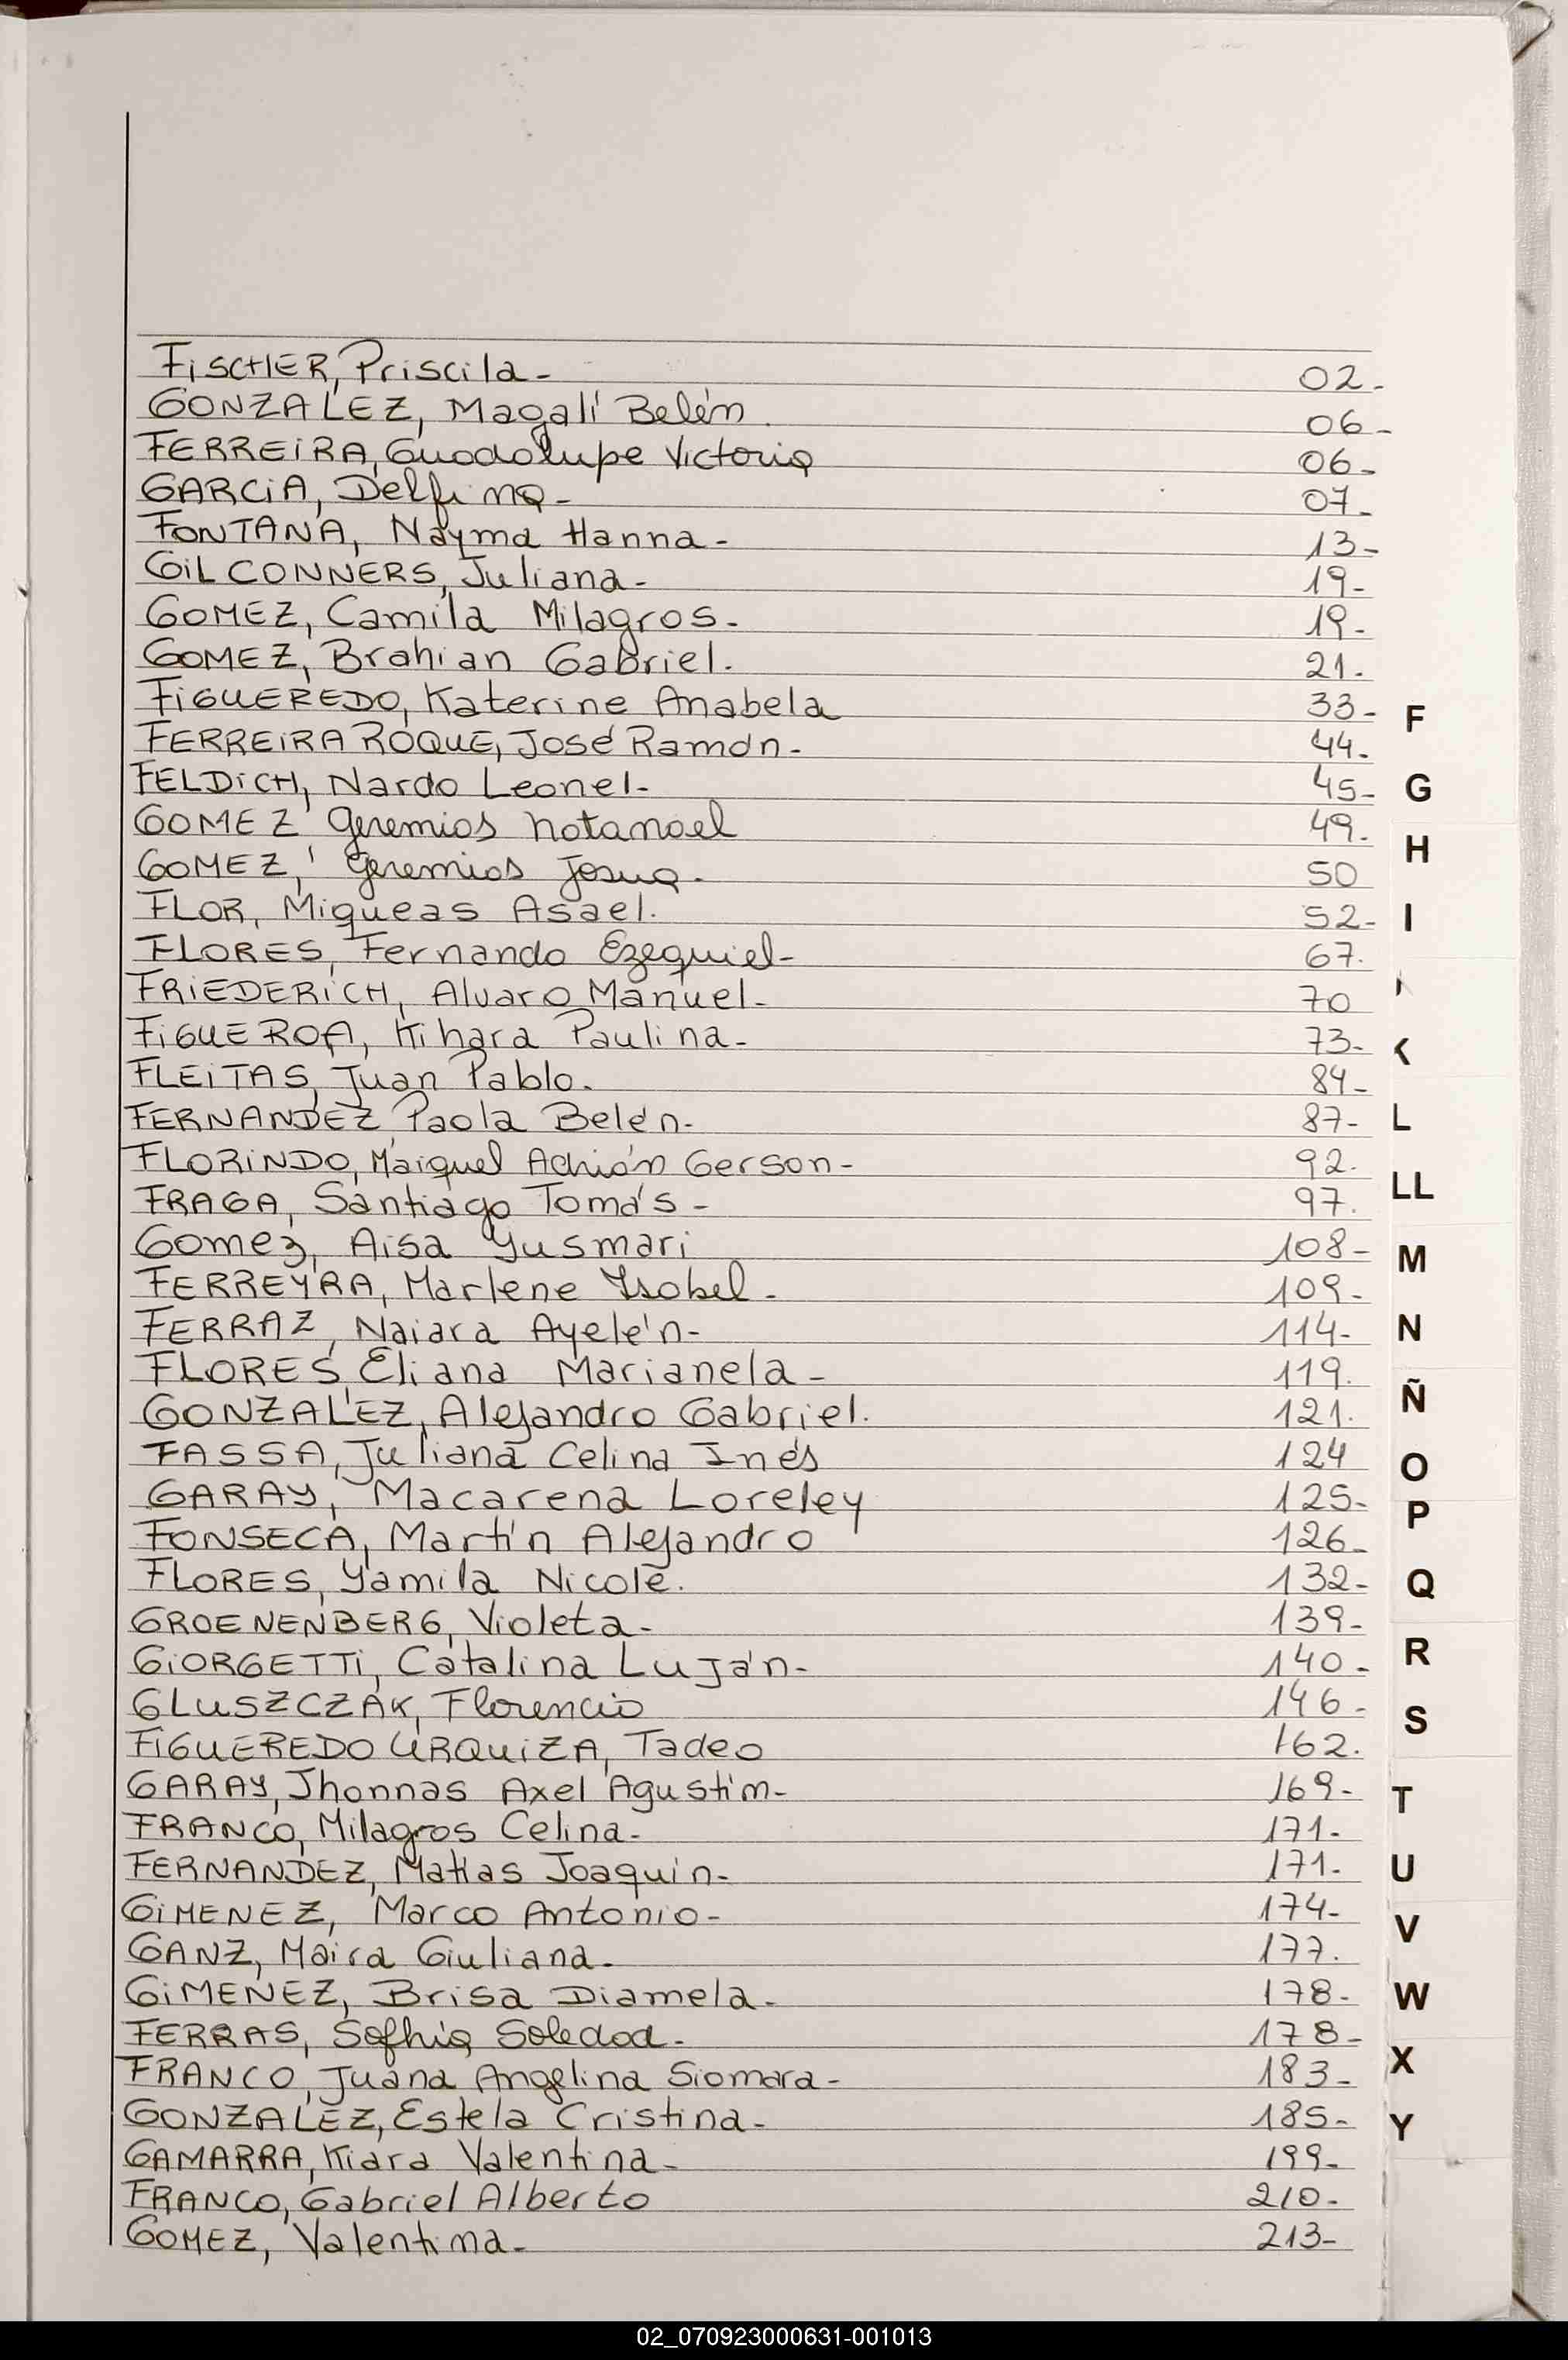 FiSCHER, Priscila- 02-
GONZALEZ, Magalí Belén. 06-
FERREiRA, Guadalupe Victoria 06-
GARCiA, Delfina- 07-
FONTANA, Nayma Hanna- 13-
GiL CONNERS, Juliana- 19-
GOMEZ, Camila Milagros- 19-
GOMEZ, Brahian Gabriel. 21-
FiGUEREDO, Katerine Anabela 33-
FERREiRA ROQUE, José Ramón- 44-
FELDiCH, Nardo Leonel- 45-
GOMEZ Geremias Natanael 49.
GOMEZ, Geremias Josua- 50
FLOR, Miqueas Asael. 52-
FLORES, Fernando Ezequiel- 67.
FRiEDERiCH, Alvaro Manuel- 70
FiGUEROA, Kihara Paulina- 73-
FLEiTAS, Juan Pablo. 84-
FERNANDEZ Paola Belén- 87-
FLORiNDO, Maiquel Adrián Gerson- 92.
FRAGA, Santiago Tomás- 97.
Gomez, Aisa Yusmari 108-
FERREYRA, Marlene Ysabel- 109-
FERRAZ, Naiara Ayelén- 114-
FLORES, Eliana Marianela- 119.
GONZALEZ, Alejandro Gabriel. 121.
FASSA, Juliana Celina Inés 124
GARAY, Macarena Loreley 125-
FONSECA, Martín Alejandro 126-
FLORES, Yamila Nicole. 132-
GROENENBERG, Violeta- 139-
GiORGETTi, Catalina Luján- 140-
GLUSZCZAK, Florencia 146-
FiGUEREDO URQUiZA, Tadeo 162.
GARAY, Jhonnas Axel Agustín- 169-
FRANCO, Milagros Celina- 171-
FERNANDEZ, Matías Joaquín- 171-
GiMENEZ, Marco Antonio- 174-
GANZ, Maira Giuliana- 177.
GiMENEZ, Brisa Diamela- 178-
FERRAS, Sofhia Soledad- 178-
FRANCO, Juana Angelina Siomara- 183-
GONZALEZ, Estela Cristina- 185-
GAMARRA, Kiara Valentina- 199-
FRANCO, Gabriel Alberto 210-
GOMEZ, Valentina- 213-
F
G
H
I
K
L
LL
M
N
Ñ
O
P
Q
R
S
T
U
V
W
X
Y
02_070923000631-001013